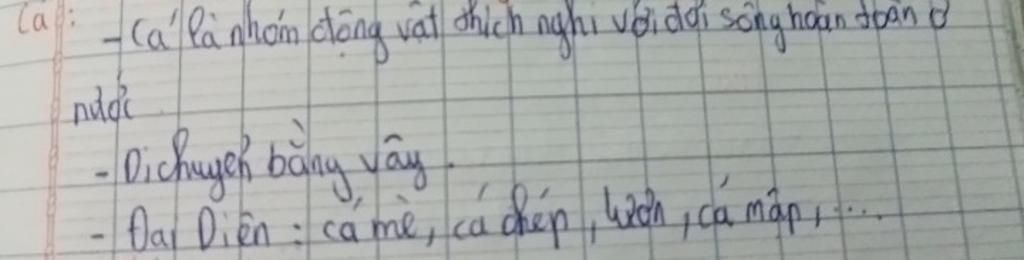 Cá:
- Cá là nhóm động vật thích nghi với đời sống hoàn toàn ở
nước
- Di chuyển bằng vây.
- Đại Diện: cá mè, cá chép, lươn, cá mập, ...